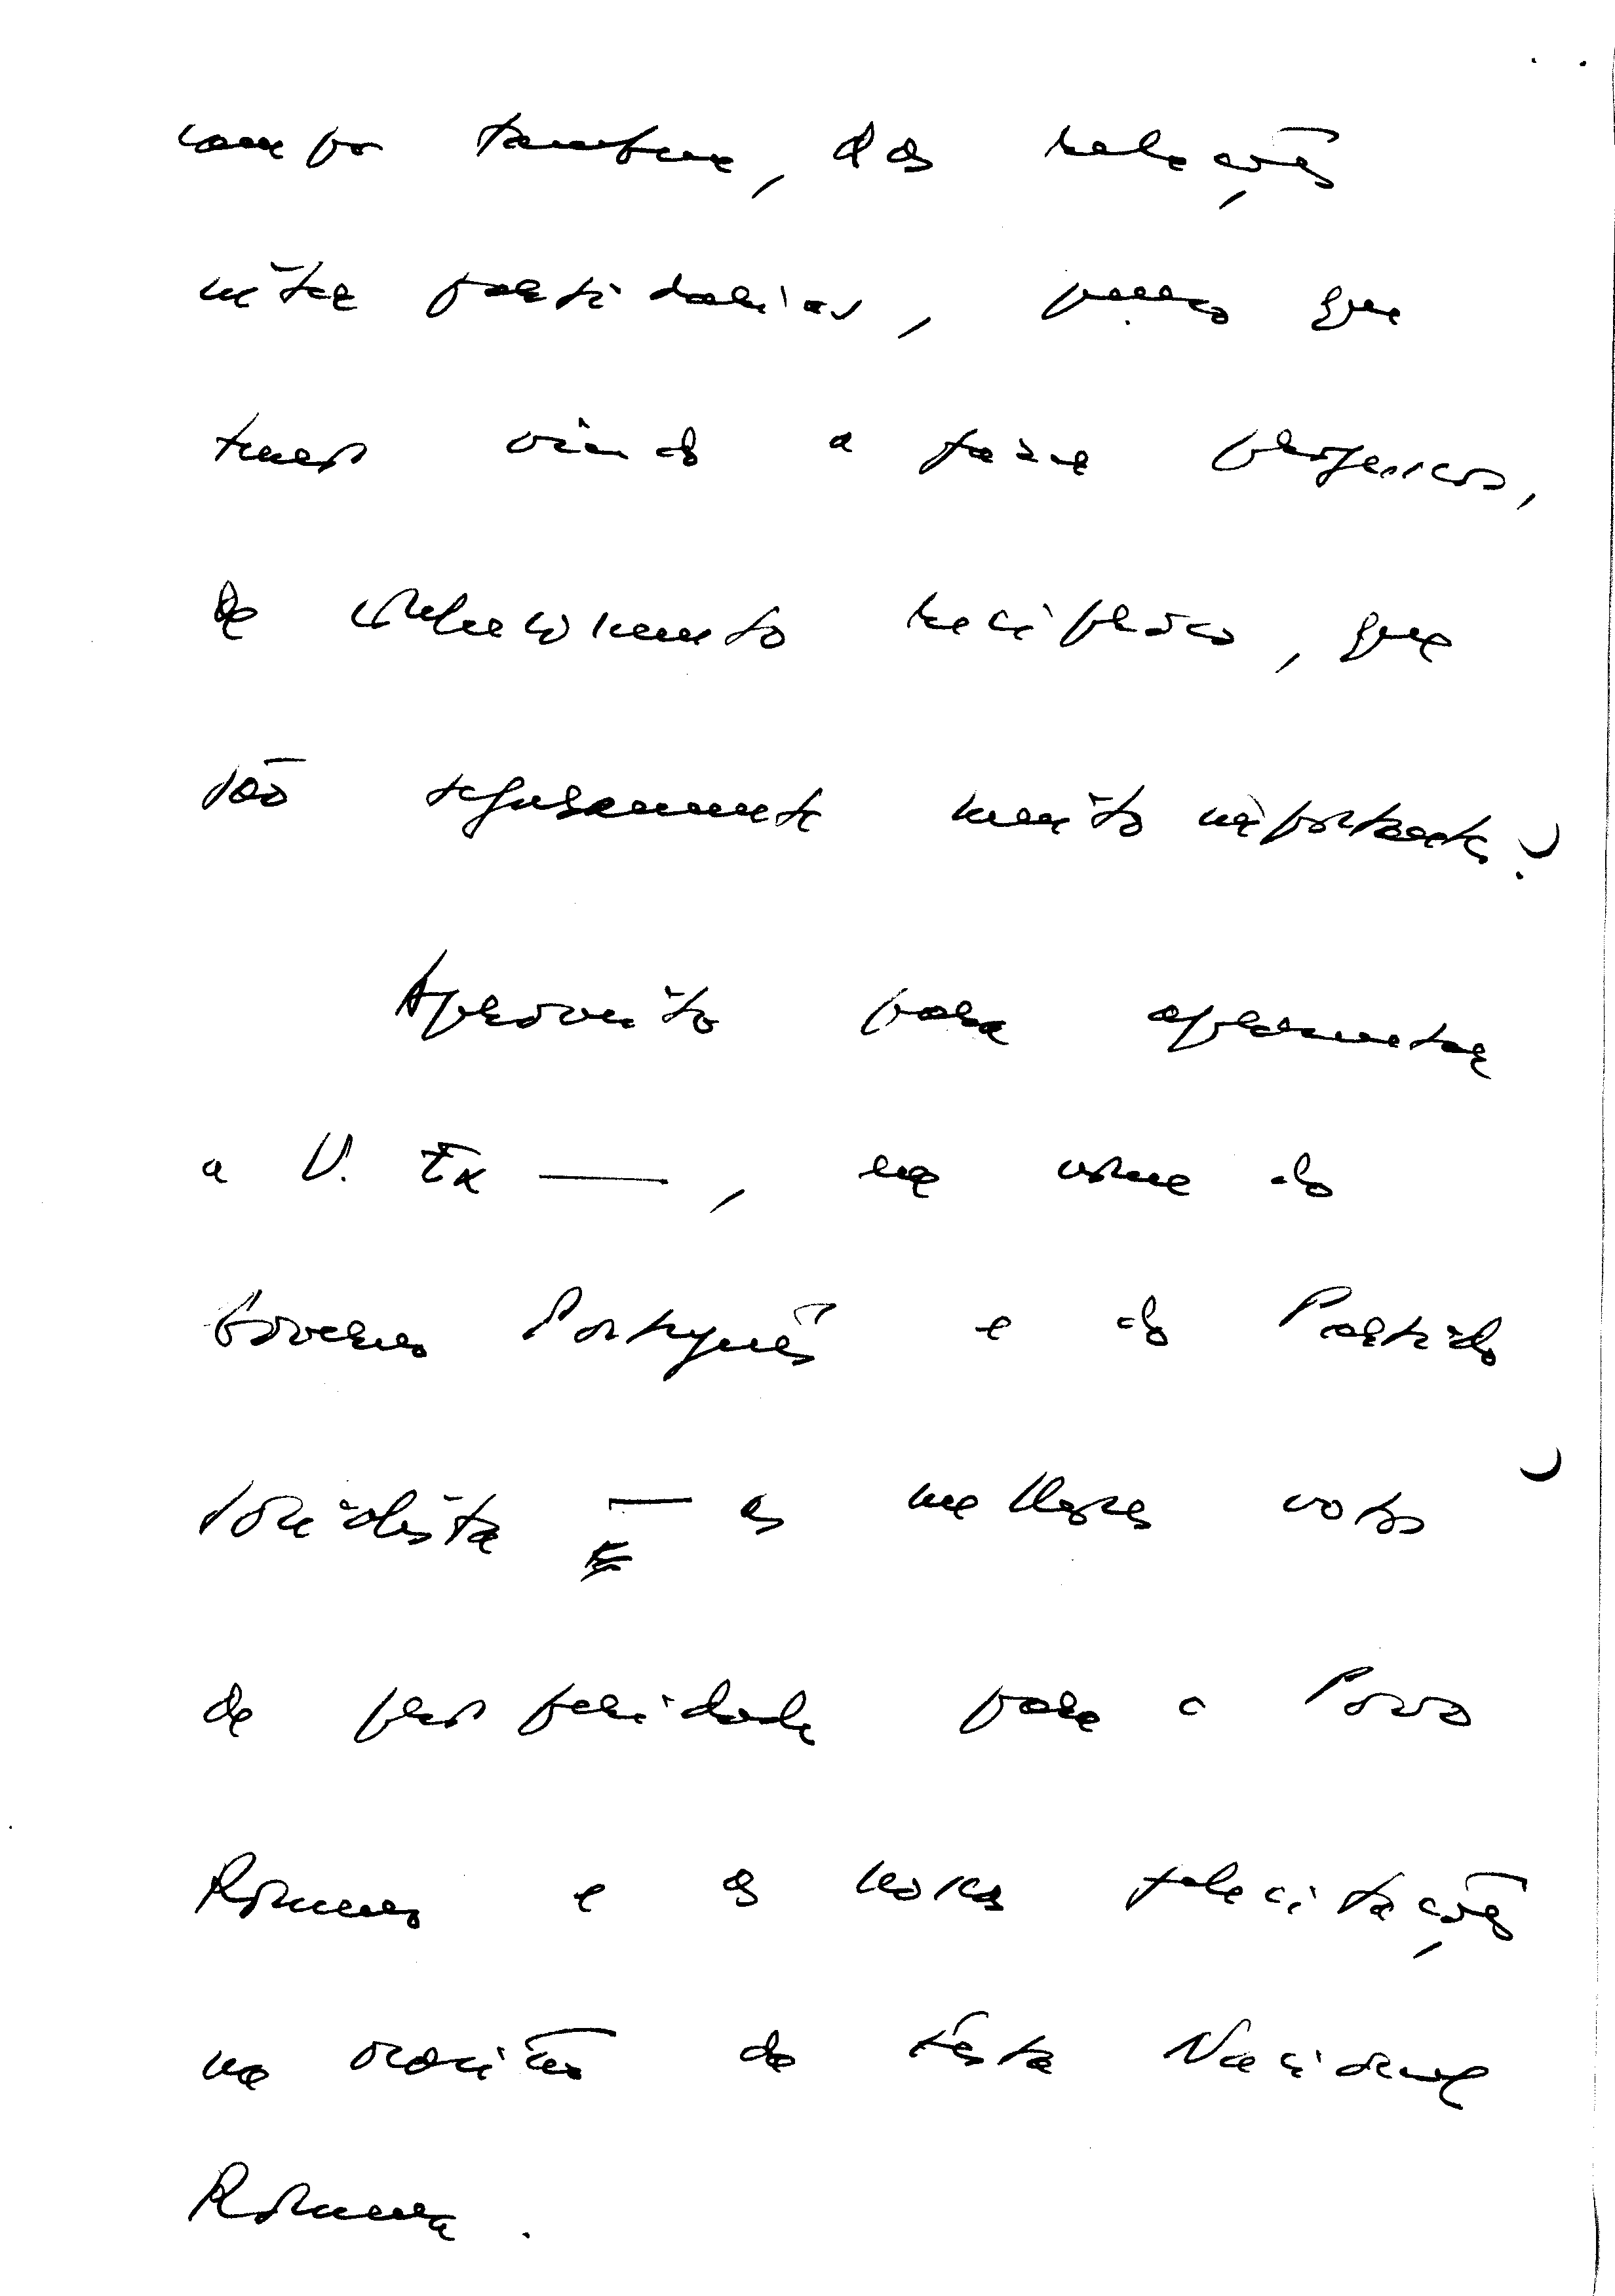 campo também, das relações
inter partidárias, penso que
temos vindo a fazer progressos,
de conhecimento recíproco, que
são seguramente muito importantes.
Aproveito para apresentar
a V. Ex —, em nome do
Governo Português e do Partido
Socialista — os melhores votos
de prosperidade para o Povo
Romeno e as nossas felicitações
na ocasião da Festa Nacional
Romena.